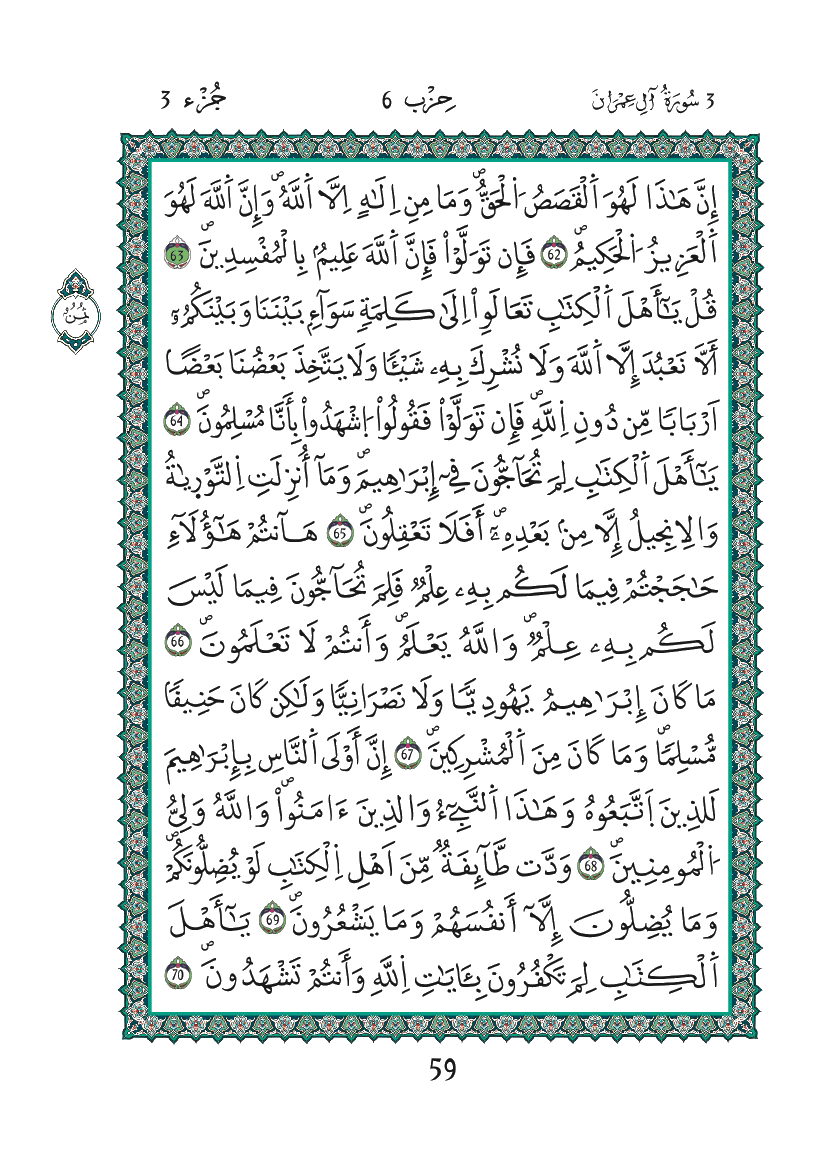 3 سُورَةُ آلِ عِمْرَانَ
حِزْب 6
جُزْء 3
إِنَّ هَٰذَا لَهُوَ اَ۬لْقَصَصُ اُ۬لْحَقُّۖ وَمَا مِنِ اِلَٰهٍ اِلَّا اَ۬للَّهُۖ وَإِنَّ اَ۬للَّهَ لَهُوَ
اَ۬لْعَزِيزُ اُ۬لْحَكِيمُۖ 62 فَإِن تَوَلَّوْاْ فَإِنَّ اَ۬للَّهَ عَلِيمُۢ بِالْمُفْسِدِينَۖ 63
ثُمُن
قُلْ يَٰٓأَهْلَ اَ۬لْكِتَٰبِ تَعَالَوِاْ اِلَىٰ كَلِمَةٖ سَوَآءِۢ بَيْنَنَا وَبَيْنَكُمُۥٓ
أَلَّا نَعْبُدَ إِلَّا اَ۬للَّهَ وَلَا نُشْرِكَ بِهِۦ شَيْـٔٗا وَلَا يَتَّخِذَ بَعْضُنَا بَعْضًا
اَرْبَابٗا مِّن دُونِ اِ۬للَّهِۖ فَإِن تَوَلَّوْاْ فَقُولُواْ اُ۪شْهَدُواْ بِأَنَّا مُسْلِمُونَۖ 64
يَٰٓأَهْلَ اَ۬لْكِتَٰبِ لِمَ تُحَآجُّونَ فِےٓ إِبْرَٰهِيمَۖ وَمَآ أُنزِلَتِ اِ۬لتَّوْرِيٰةُ
وَالِانجِيلُ إِلَّا مِنۢ بَعْدِهِۦٓۖ أَفَلَا تَعْقِلُونَۖ 65 هَآنتُمْ هَٰٓؤُلَآءِ
حَٰجَجْتُمْ فِيمَا لَكُم بِهِۦ عِلْمٞ فَلِمَ تُحَآجُّونَ فِيمَا لَيْسَ
لَكُم بِهِۦ عِلْمٞۖ وَاللَّهُ يَعْلَمُۖ وَأَنتُمْ لَا تَعْلَمُونَۖ 66
مَا كَانَ إِبْرَٰهِيمُ يَهُودِيّٗا وَلَا نَصْرَانِيّٗا وَلَٰكِن كَانَ حَنِيفٗا
مُّسْلِمٗاۖ وَمَا كَانَ مِنَ اَ۬لْمُشْرِكِينَۖ 67 إِنَّ أَوْلَى اَ۬لنَّاسِ بِإِبْرَٰهِيمَ
لَلذِينَ اَ۪تَّبَعُوهُ وَهَٰذَا اَ۬لنَّبِےٓءُ وَالذِينَ ءَامَنُواْۖ وَاللَّهُ وَلِيُّ
اُ۬لْمُومِنِينَۖ 68 وَدَّت طَّآئِفَةٞ مِّنَ اَهْلِ اِ۬لْكِتَٰبِ لَوْ يُضِلُّونَكُمْۖ
وَمَا يُضِلُّونَ إِلَّآ أَنفُسَهُمْ وَمَا يَشْعُرُونَۖ 69 يَٰٓأَهْلَ
اَ۬لْكِتَٰبِ لِمَ تَكْفُرُونَ بِـَٔايَٰتِ اِ۬للَّهِ وَأَنتُمْ تَشْهَدُونَۖ 70
59